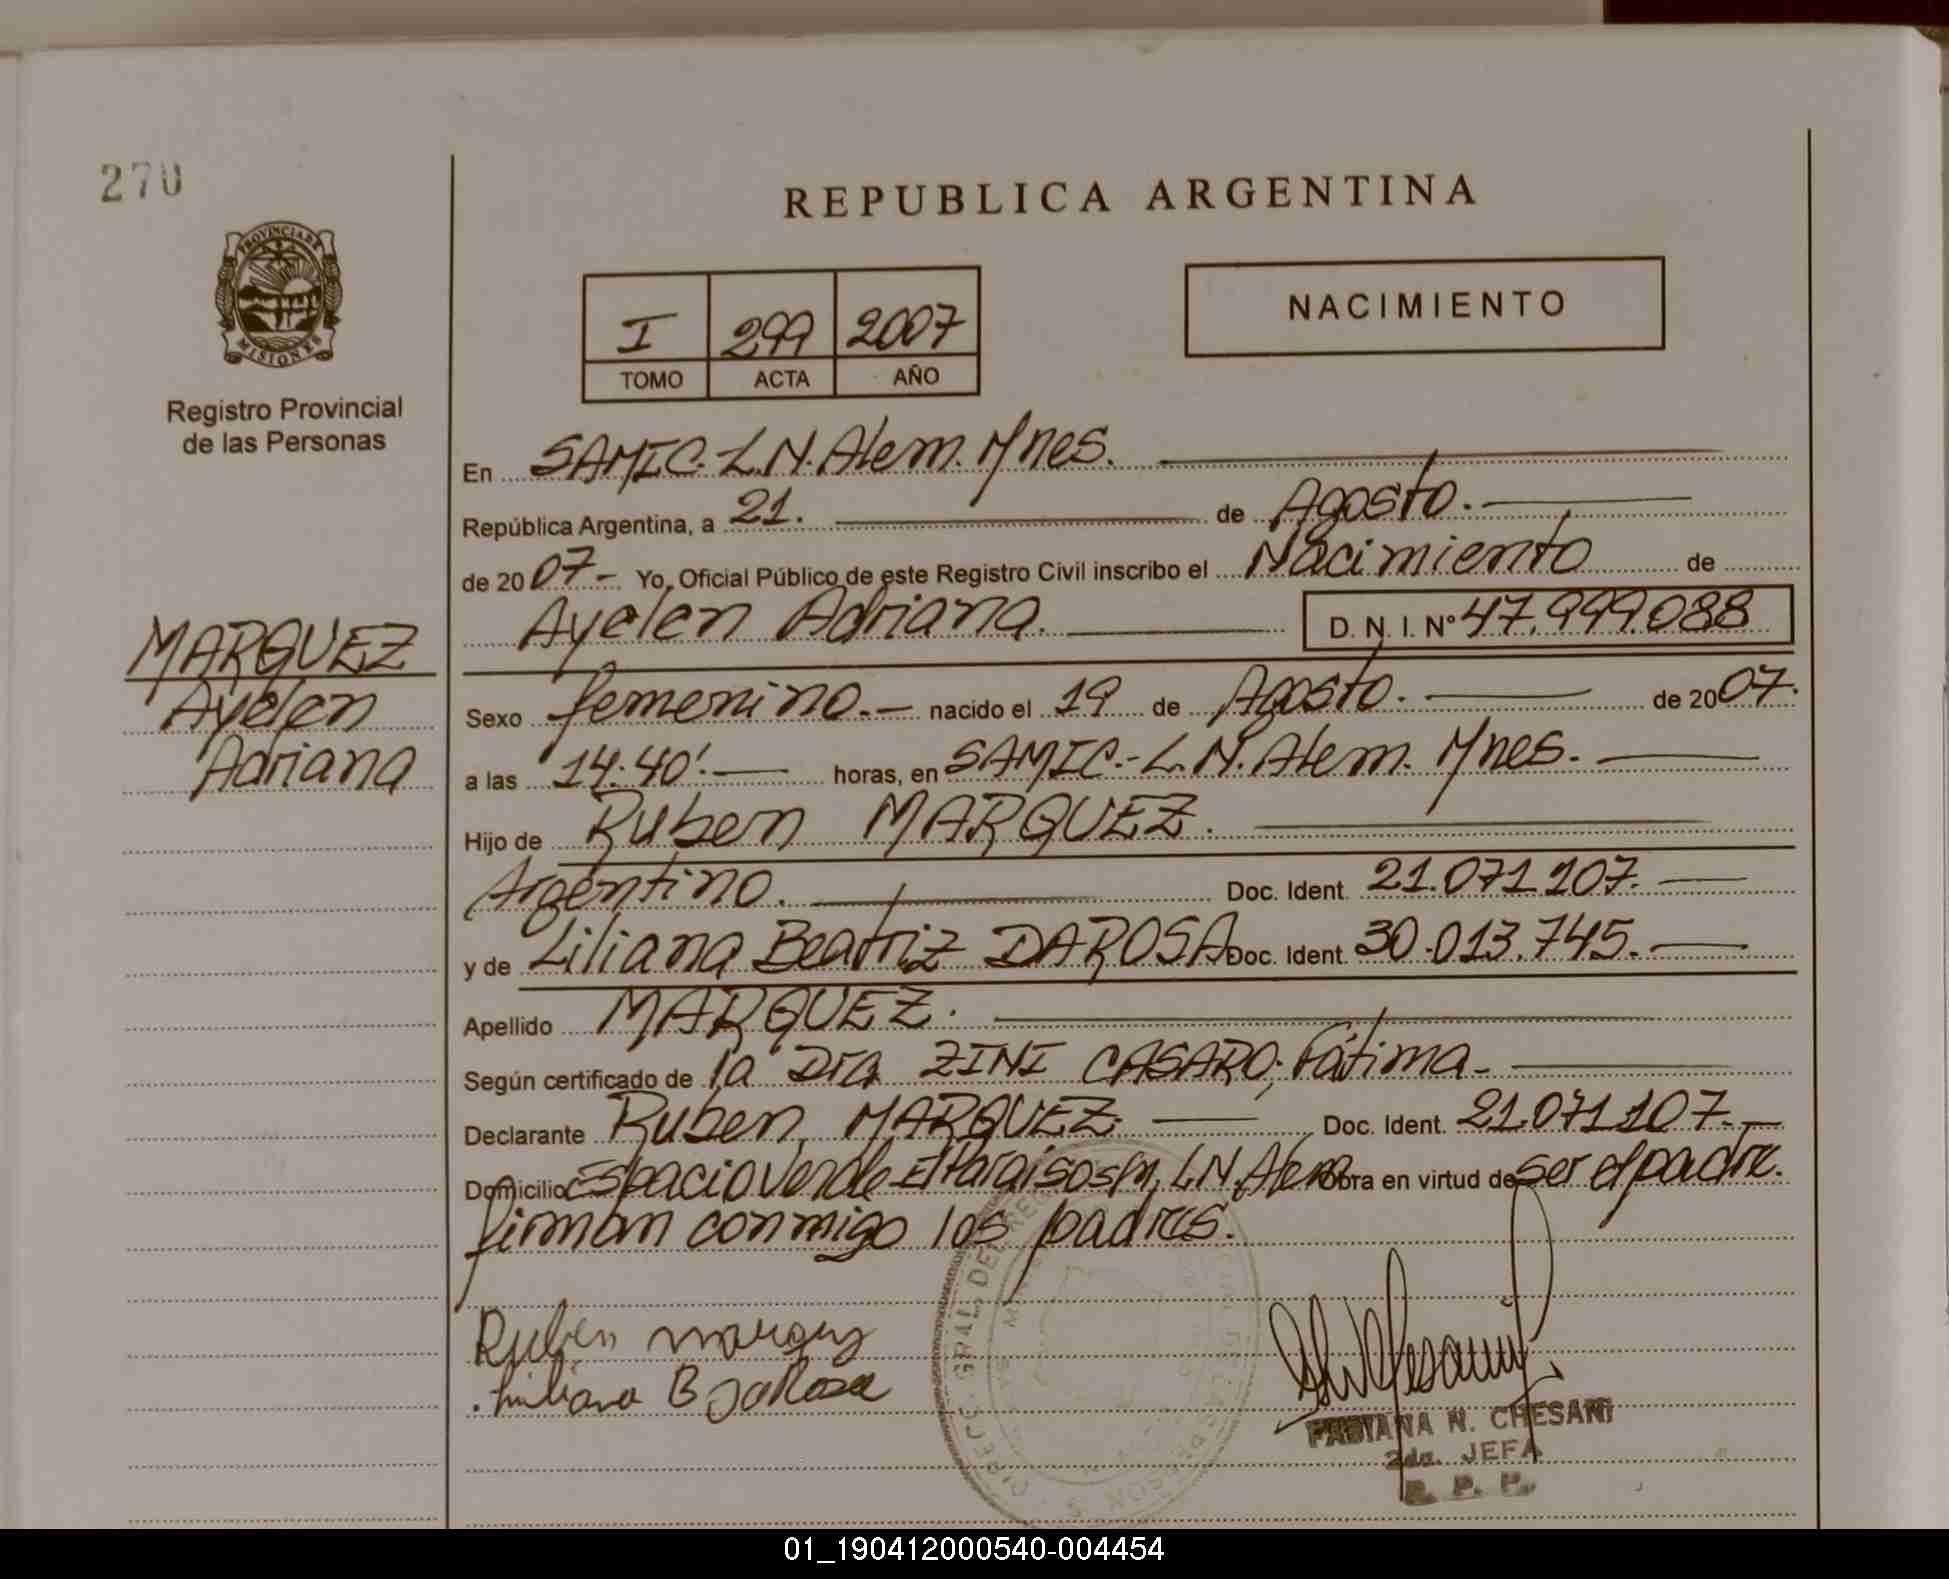 270
REPUBLICA ARGENTINA
PROVINCIA DE
MISIONES
Registro Provincial
de las Personas
I 299 2007
TOMO ACTA AÑO
NACIMIENTO
En SAMIC. L.N. Alem. Mnes.
República Argentina, a 21. de Agosto.
de 20 07 - Yo, Oficial Público de este Registro Civil inscribo el Nacimiento de
Ayelen Adriana. D. N. I. Nº 47.999.088
MARQUEZ
Ayelen
Adriana
Sexo femenino.- nacido el 19 de Agosto. de 20 07.
a las 14.40'. horas, en SAMIC.-L.N. Alem. Mnes.
Hijo de Ruben MARQUEZ.
Argentino. Doc. Ident. 21.071.107.
y de Liliana Beatriz DA ROSA Doc. Ident. 30.013.745.
Apellido MARQUEZ.
Según certificado de la Dra ZINI CASARO; Fátima.
Declarante Ruben MARQUEZ. Doc. Ident. 21.071.107.
Domicilio Espacio Verde El Paraiso s/n, L.N. Alem Obra en virtud de ser el padre.
firman conmigo los padres.
Ruben marquez
Liliana B DaRosa
FABIANA N. CHESANI
2da. JEFA
R. P. P.
01_190412000540-004454